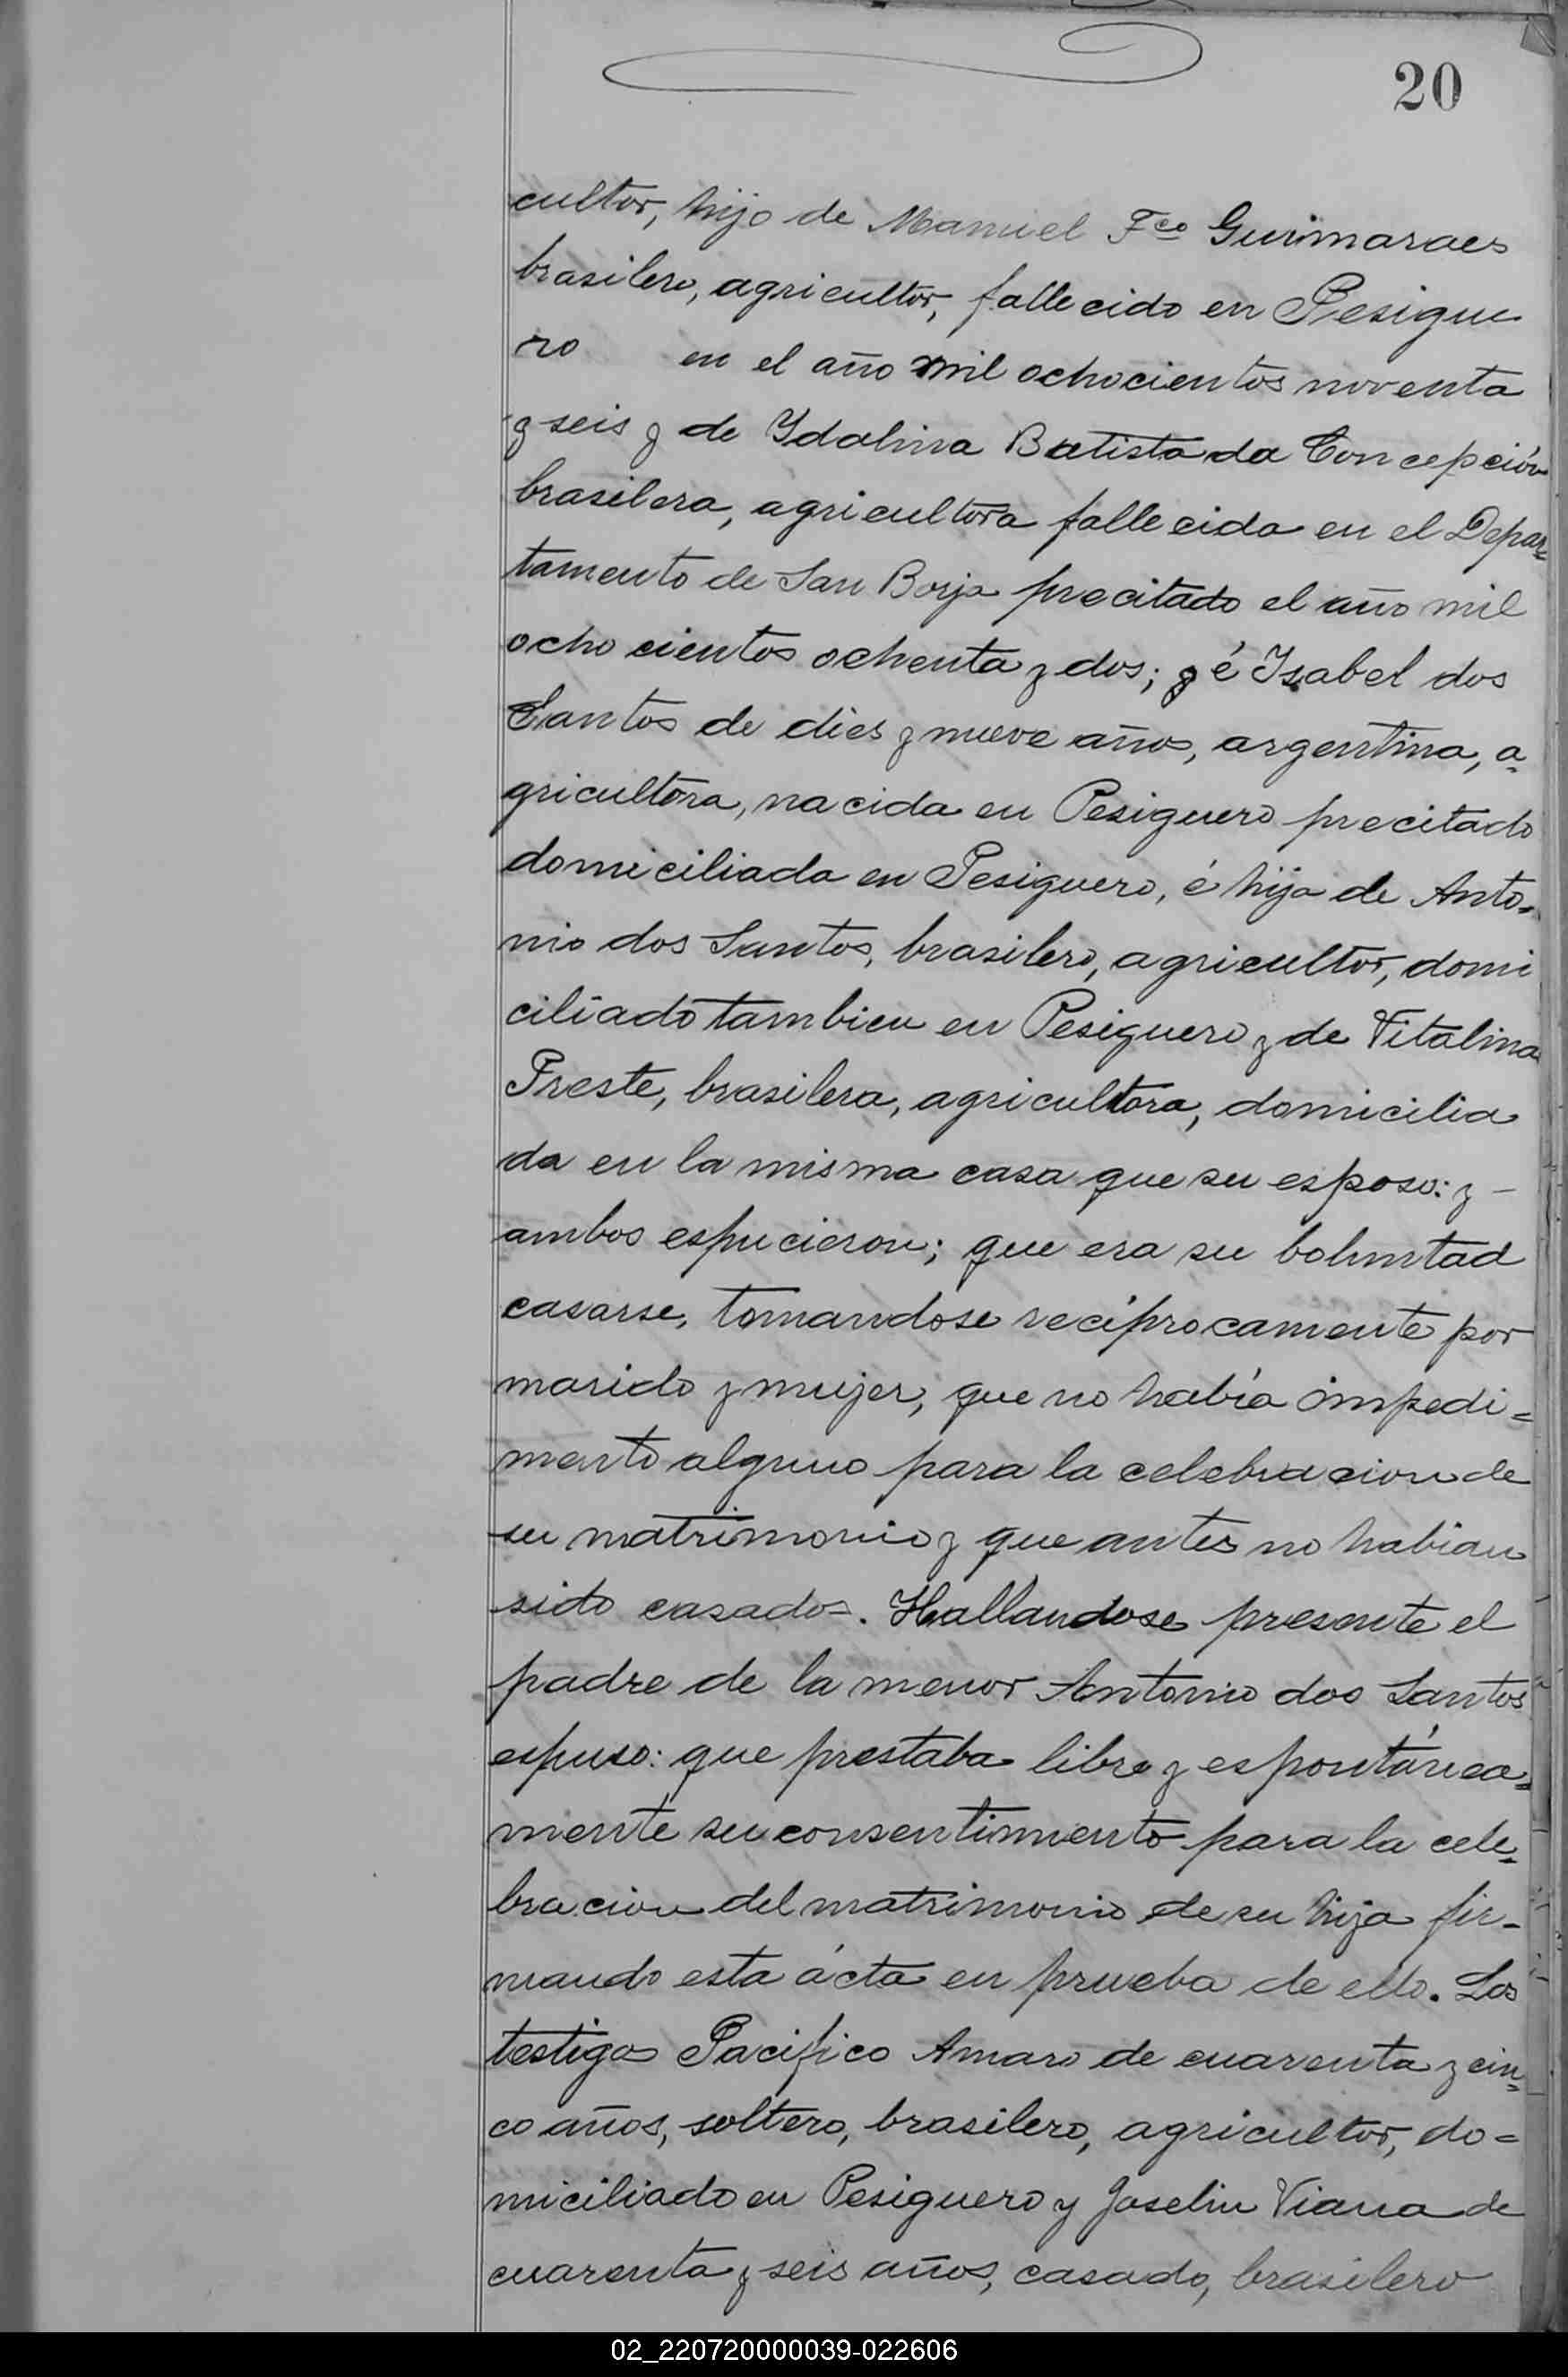 20
cultor, hijo de Manuel Fco Guimaraes
brasilero, agricultor, fallecido en Pesigue
ro en el año mil ochocientos noventa
y seis y de Ydalina Batista da Concepción
brasilera, agricultora fallecida en el Depar=
tamento de San Borja precitado el año mil
ochocientos ochenta y dos; y é Isabel dos
Santos de dies y nueve años, argentina, a=
gricultora, nacida en Pesiguero precitado
domiciliada en Pesiguero, é hija de Anto=
nio dos Santos, brasilero, agricultor, domi
ciliado tambien en Pesiguero y de Vitalina
Preste, brasilera, agricultora, domicilia
da en la misma casa que su esposo: y –
ambos espucieron; que era su boluntad
casarse, tomandose recíprocamente por
marido y mujer, que no había impedi=
mento alguno para la celebracion de
su matrimonio y que antes no habian
sido casados. Hallandose presente el
padre de la menor Antonio dos Santos
espuso: que prestaba libre y espontánea=
mente su consentimiento para la cele=
bracion del matrimonio de su hija fir-
mando esta ácta en prueba de ello. Los
testigos Pacifico Amaro de cuarenta y cin=
co años, soltero, brasilero, agricultor, do=
miciliado en Pesiguero y Joselin Viana de
cuarenta y seis años, casado, brasilero
02_220720000039-022606